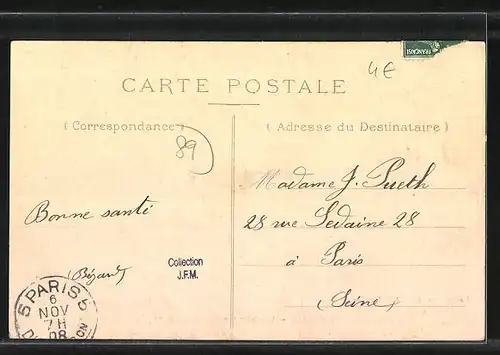 FRANÇAISE
4€
CARTE POSTALE
(Correspondance)
(Adresse du Destinataire)
89
Madame J. Pueth
Bonne santé
28 rue Sedaine 28
à Paris
Collection
J.F.M.
(Bézard)
(Seine)
5 PARIS 5
6
NOV
7H
08